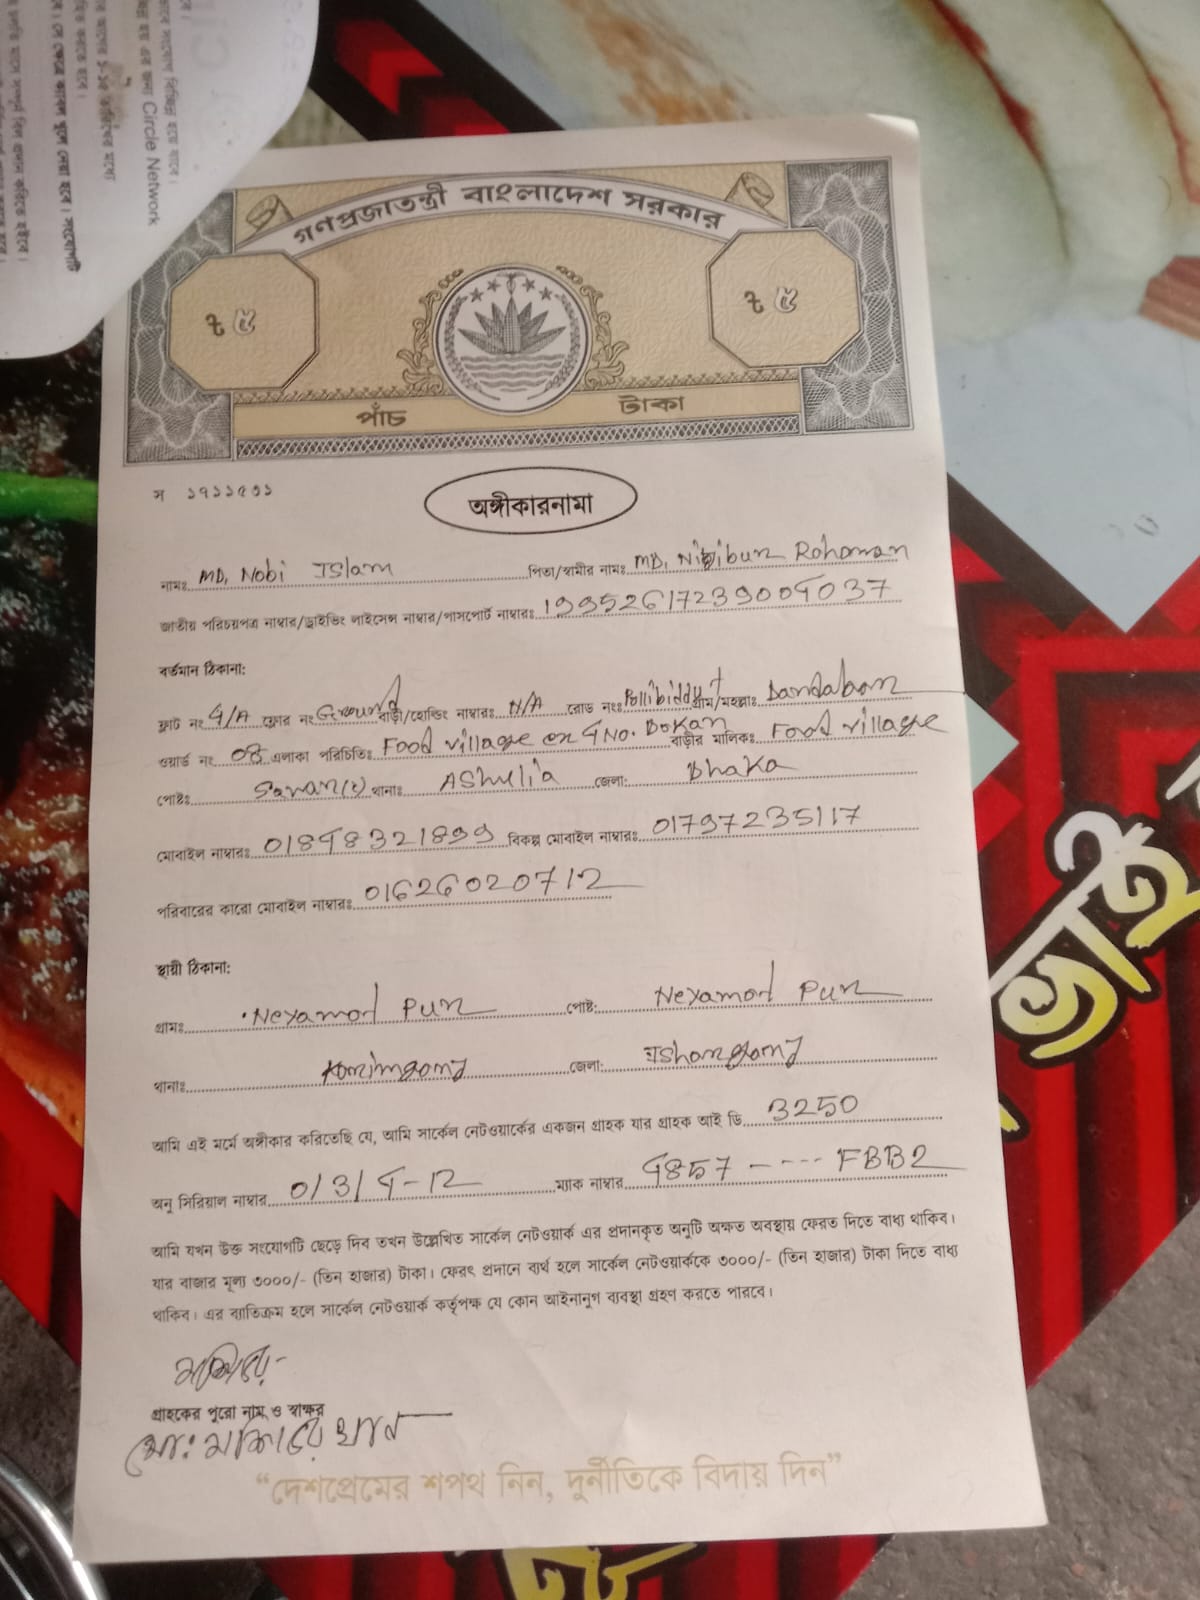 বে।
জাবে সংযোগ বিচ্ছিন্ন হয়ে যাবে।
এর জন্য Circle Network
গণপ্রজাতন্ত্রী বাংলাদেশ সরকার
৳ ৫
৳ ৫
পাঁচ টাকা
স ১৭১১৫৩১
অঙ্গীকারনামা
নামঃ MD. Nobi Islam পিতা/স্বামীর নামঃ MD. Rohoman
জাতীয় পরিচয়পত্র নাম্বার/ড্রাইভিং লাইসেন্স নাম্বার/পাসপোর্ট নাম্বারঃ
বর্তমান ঠিকানা:
ফ্লাট নং 4/A ফ্লোর নং Ground বাড়ী/হোল্ডিং নাম্বারঃ N/A রোড নংঃ Pollibiddut গ্রাম/মহল্লাঃ Dandabon
ওয়ার্ড নং 08 এলাকা পরিচিতিঃ Food village er 4 No. Dokan বাড়ীর মালিকঃ Food village
পোষ্টঃ Savar(c) থানাঃ AShulia জেলা: Dhaka
মোবাইল নাম্বারঃ 01848321899 বিকল্প মোবাইল নাম্বারঃ 01797235117
পরিবারের কারো মোবাইল নাম্বারঃ 01626020712
স্থায়ী ঠিকানা:
গ্রামঃ Neyamod Pur পোষ্ট: Neyamod Pur
থানাঃ Korimgonj জেলা:
আমি এই মর্মে অঙ্গীকার করিতেছি যে, আমি সার্কেল নেটওয়ার্কের একজন গ্রাহক যার গ্রাহক আই ডি 3250
অনু সিরিয়াল নাম্বার 0/3/4-12 ম্যাক নাম্বার 4857 ---- FBB2
আমি যখন উক্ত সংযোগটি ছেড়ে দিব তখন উল্লেখিত সার্কেল নেটওয়ার্ক এর প্রদানকৃত অনুটি অক্ষত অবস্থায় ফেরত দিতে বাধ্য থাকিব।
যার বাজার মূল্য ৩০০০/- (তিন হাজার) টাকা। ফেরৎ প্রদানে ব্যর্থ হলে সার্কেল নেটওয়ার্ককে ৩০০০/- (তিন হাজার) টাকা দিতে বাধ্য
থাকিব। এর ব্যাতিক্রম হলে সার্কেল নেটওয়ার্ক কর্তৃপক্ষ যে কোন আইনানুগ ব্যবস্থা গ্রহণ করতে পারবে।
গ্রাহকের পুরো নাম ও স্বাক্ষর
মো: খান
“দেশপ্রেমের শপথ নিন, দুর্নীতিকে বিদায় দিন”